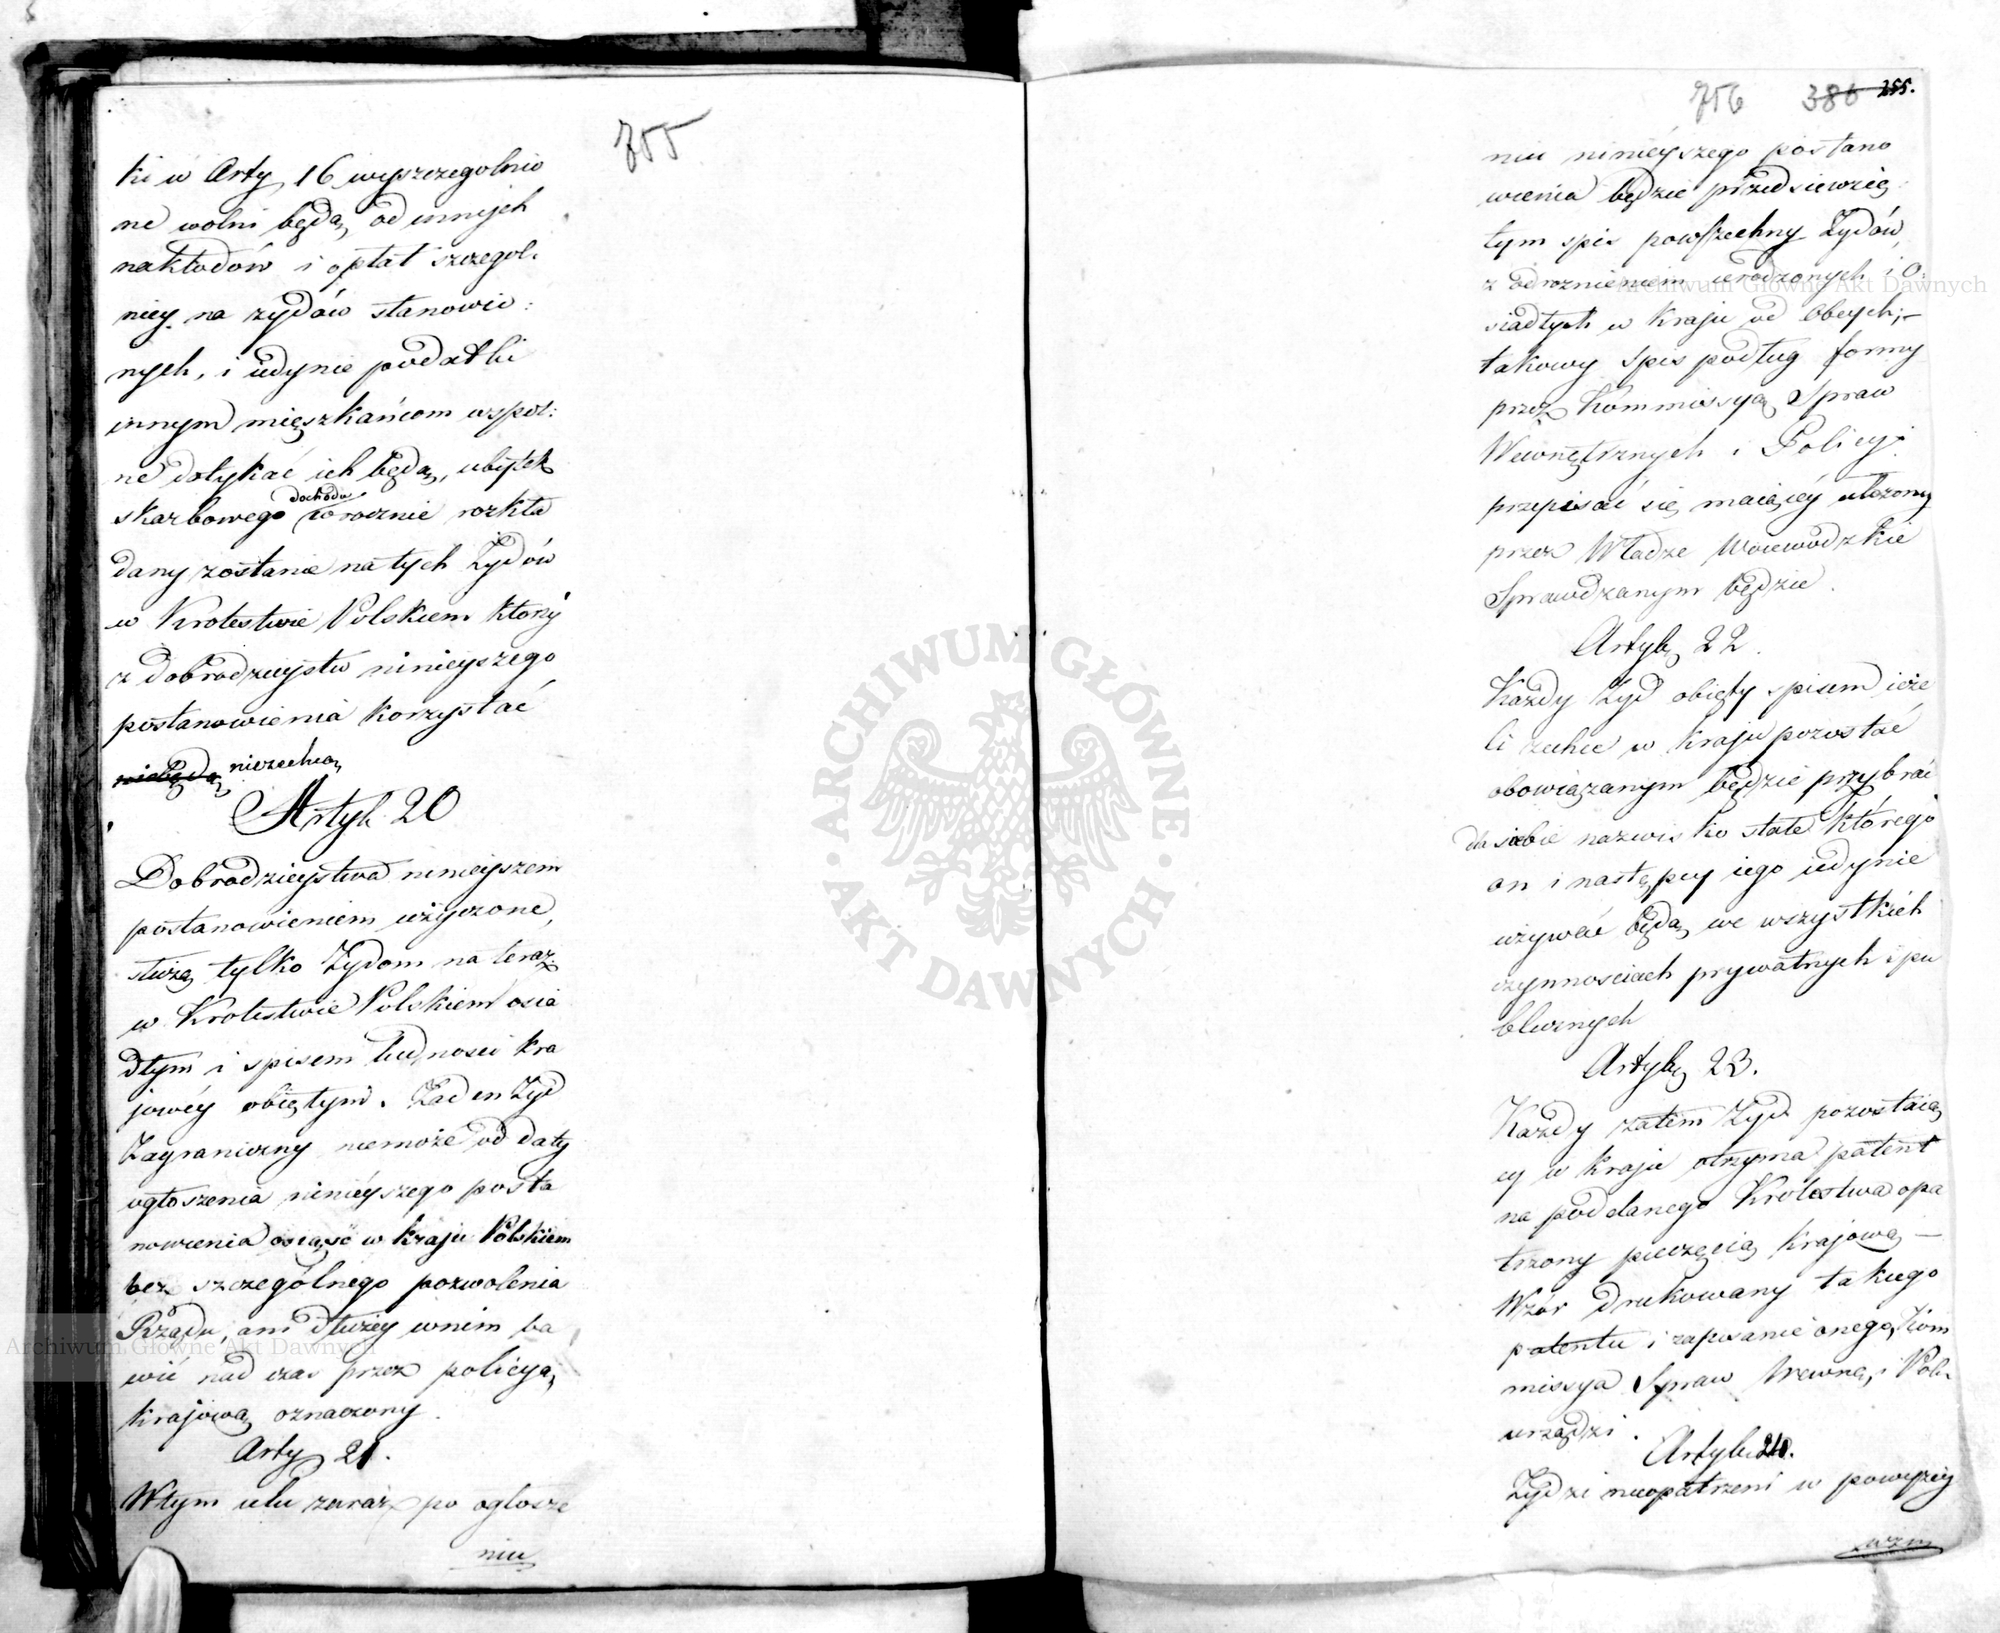 755
ki w Arty 16 wyszczegolnio
ne wolni będą od innych
nakładów i opłat szczegol.
niey na żydów stanowio:
nych, i iedynie podatki
innym mięszkańcom wspol:
ne dotykać ich będą, ubytek
skarbowego dochodu corocznie rozkła
dany zostanie na tych Żydów
w Krolestwie Polskiem ktorzy
z dobrodzieystw ninieyszego
postanowienia korzystać
niebędą niezechcą
Artyk 20
Dobrodzieystwa ninieyszem
postanowieniem użyczone,
służą tylko Żydom na teraz
w Krolestwie Polskiem osia
dłym i spisem ludnosci kra
jowéy obiętym. Żaden Żyd
Zagraniczny niemoże od daty
ogłoszenia ninieyszego posta
nowienia osiąść w kraju Polskiem
bez szczególnego pozwolenia
Rządu, ani dłużey w nim ba
wić nad czas przez policyą
krajową oznaczony.
Arty 21.
W tym celu zaraz po ogłosze
niu
756 386 255.
niu ninieyszego postano
wienia będzie przedsiewzię:
tym spis powszechny Żydów,
z odroznieniem urodzonych i O:
siadłych w kraju od Obcych;–
takowy spis podług formy
przez Kommissyą Spraw
Wewnętrznych i Policyi
przepisać się maiącéy ułozony
przez Władze Woiewodzkie
Sprawdzanym będzie.
Artyk 22.
Każdy Żyd obięty spisem ieże
li zechce w kraju pozostać
obowiązanym będzie przybrać
dla siebie nazwisko stałe którego
on i następcy iego iedynie
używać będą we wszystkich
czynnosciach prywatnych i pu
blicznych
Artyk 23.
Każdy zatem Żyd pozostaią
cy w kraju otrzyma patent
na poddanego Krolestwa opa
trzony pieczęcią krajową –
Wzór drukowany takiego
patentu i zapisanie onego, Kom
missya Spraw Wewnę, i Poli.
urządzi.
Artyk 24.
Żydzi nieopatrzeni w powyzey
wzm
ARCHIWUM GŁÓWNE · AKT DAWNYCH ·
Archiwum Główne Akt Dawnych
Archiwum Główne Akt Dawnych